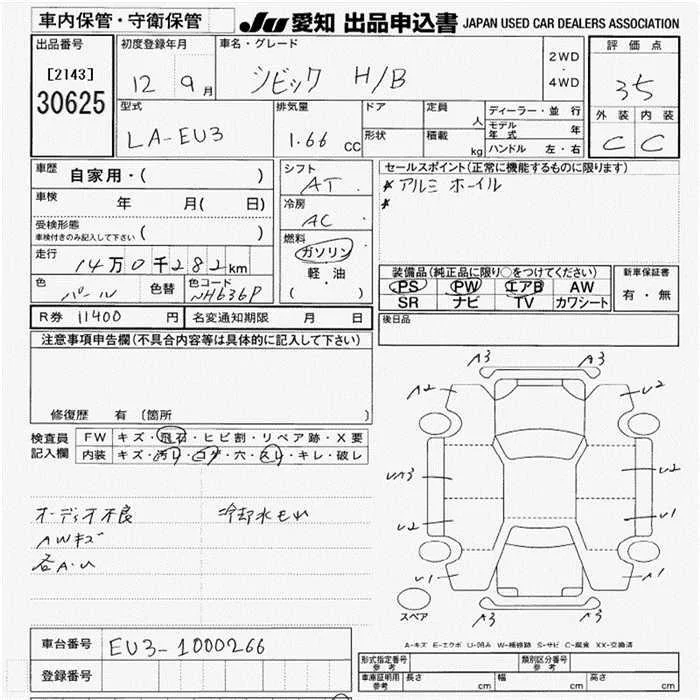 車内保管・守衛保管 JU 愛知 出品申込書 JAPAN USED CAR DEALERS ASSOCIATION
出品番号 初度登録年月 車名・グレード 2WD 評価点
[2143] 12 9月 シビック H/B ・ 35
30625 4WD
型式 排気量 ドア 定員 人 ディーラー・並行 外装 内装
LA-EU3 1.66 cc 形状 積載 kg モデル年式 年 C C
ハンドル 左・右
車歴 自家用・( ) シフト AT セールスポイント(正常に機能するものに限ります)
車検 年 月( 日) 冷房 AC *アルミ ホーイル
受検形態 ( ) *
車検付きのみ記入して下さい
走行 14万0千282km 燃料 ガソリン 装備品(純正品に限り○をつけてください) 新車保証書
色 パール 色替 色コード NH636P 軽・油 PS PW エアB AW 有・無
( ・ ) SR ナビ TV カワシート
R券 11400 円 名変通知期限 月 日 後日品
注意事項申告欄(不具合内容等は具体的に記入して下さい)
修復歴 有 〔箇所 〕
検査員 FW キズ・飛石・ヒビ割・リペア跡・X要
記入欄 内装 キズ・汚レ・コゲ・穴・スレ・キレ・破レ
オーディオ不良 冷却水もれ
AWキズ
各A・U
A3 A3
A2 U2
UA3
U2 U1
U1 A1
スペア A3 A3
A-キズ E-エクボ U-凹み W-補修跡 S-サビ C-腐食 XX-交換済
車台番号 EU3-1000266
登録番号
形式指定番号 参考 類別区分番号 参考
車庫証明用 参考 長さ cm 幅 cm 高さ cm